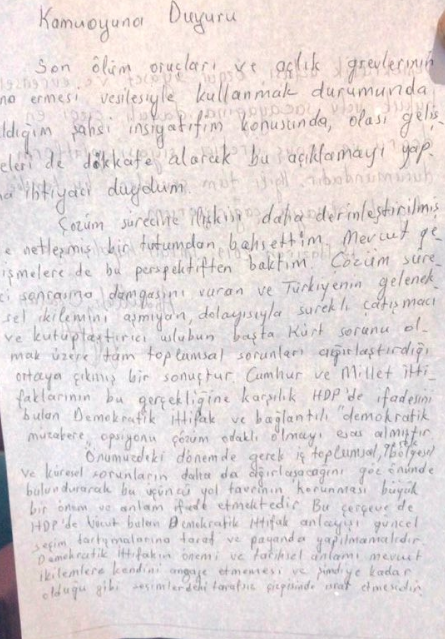 Kamuoyuna Duyuru
Son ölüm oruçları ve açlık grevlerinin
na ermesi vesilesiyle kullanmak durumunda
ldığım şahsi insiyatifim konusunda, olası geliş-
eleri de dikkate alarak bu açıklamayı yap-
a ihtiyacı duydum.
Çözüm sürecine ilişkin daha derinleştirilmiş
e netleşmiş bir tutumdan bahsettim. Mevcut ge
işmelere de bu perspektiften baktım. Çözüm süre-
ci sonrasına damgasını vuran ve Türkiyenin gelenek-
sel ikilemini aşmıyan, dolayısıyla sürekli çatışmacı
ve kutuplaştırıcı uslubun başta Kürt sorunu ol-
mak üzere tüm toplumsal sorunları ağırlaştırdığı
ortaya çıkmış bir sonuçtur. Cumhur ve Millet itti-
faklarının bu gerçekliğine karşılık HDP'de ifadesini
bulan Demokratik İttifak ve bağlantılı demokratik
müzakere opsiyonu çözüm odaklı olmayı esas almıştır.
Önümüzdeki dönemde gerek iç toplumsal, bölgesel
ve küresel sorunların daha da ağırlaşacağını göz önünde
bulundurarak bu üçüncü yol tavrının korunması büyük
bir önem ve anlam ifade etmektedir. Bu çerçeve de
HDP'de vücut bulan Demokratik İttifak anlayışı güncel
seçim tartışmalarına taraf ve payanda yapılmamalıdır.
Demokratik İttifakın önemi ve tarihsel anlamı mevcut
ikilemlere kendini angaje etmemesi ve şimdiye kadar
olduğu gibi seçimlerdeki tarafsız çizgisinde ısrar etmesidir.